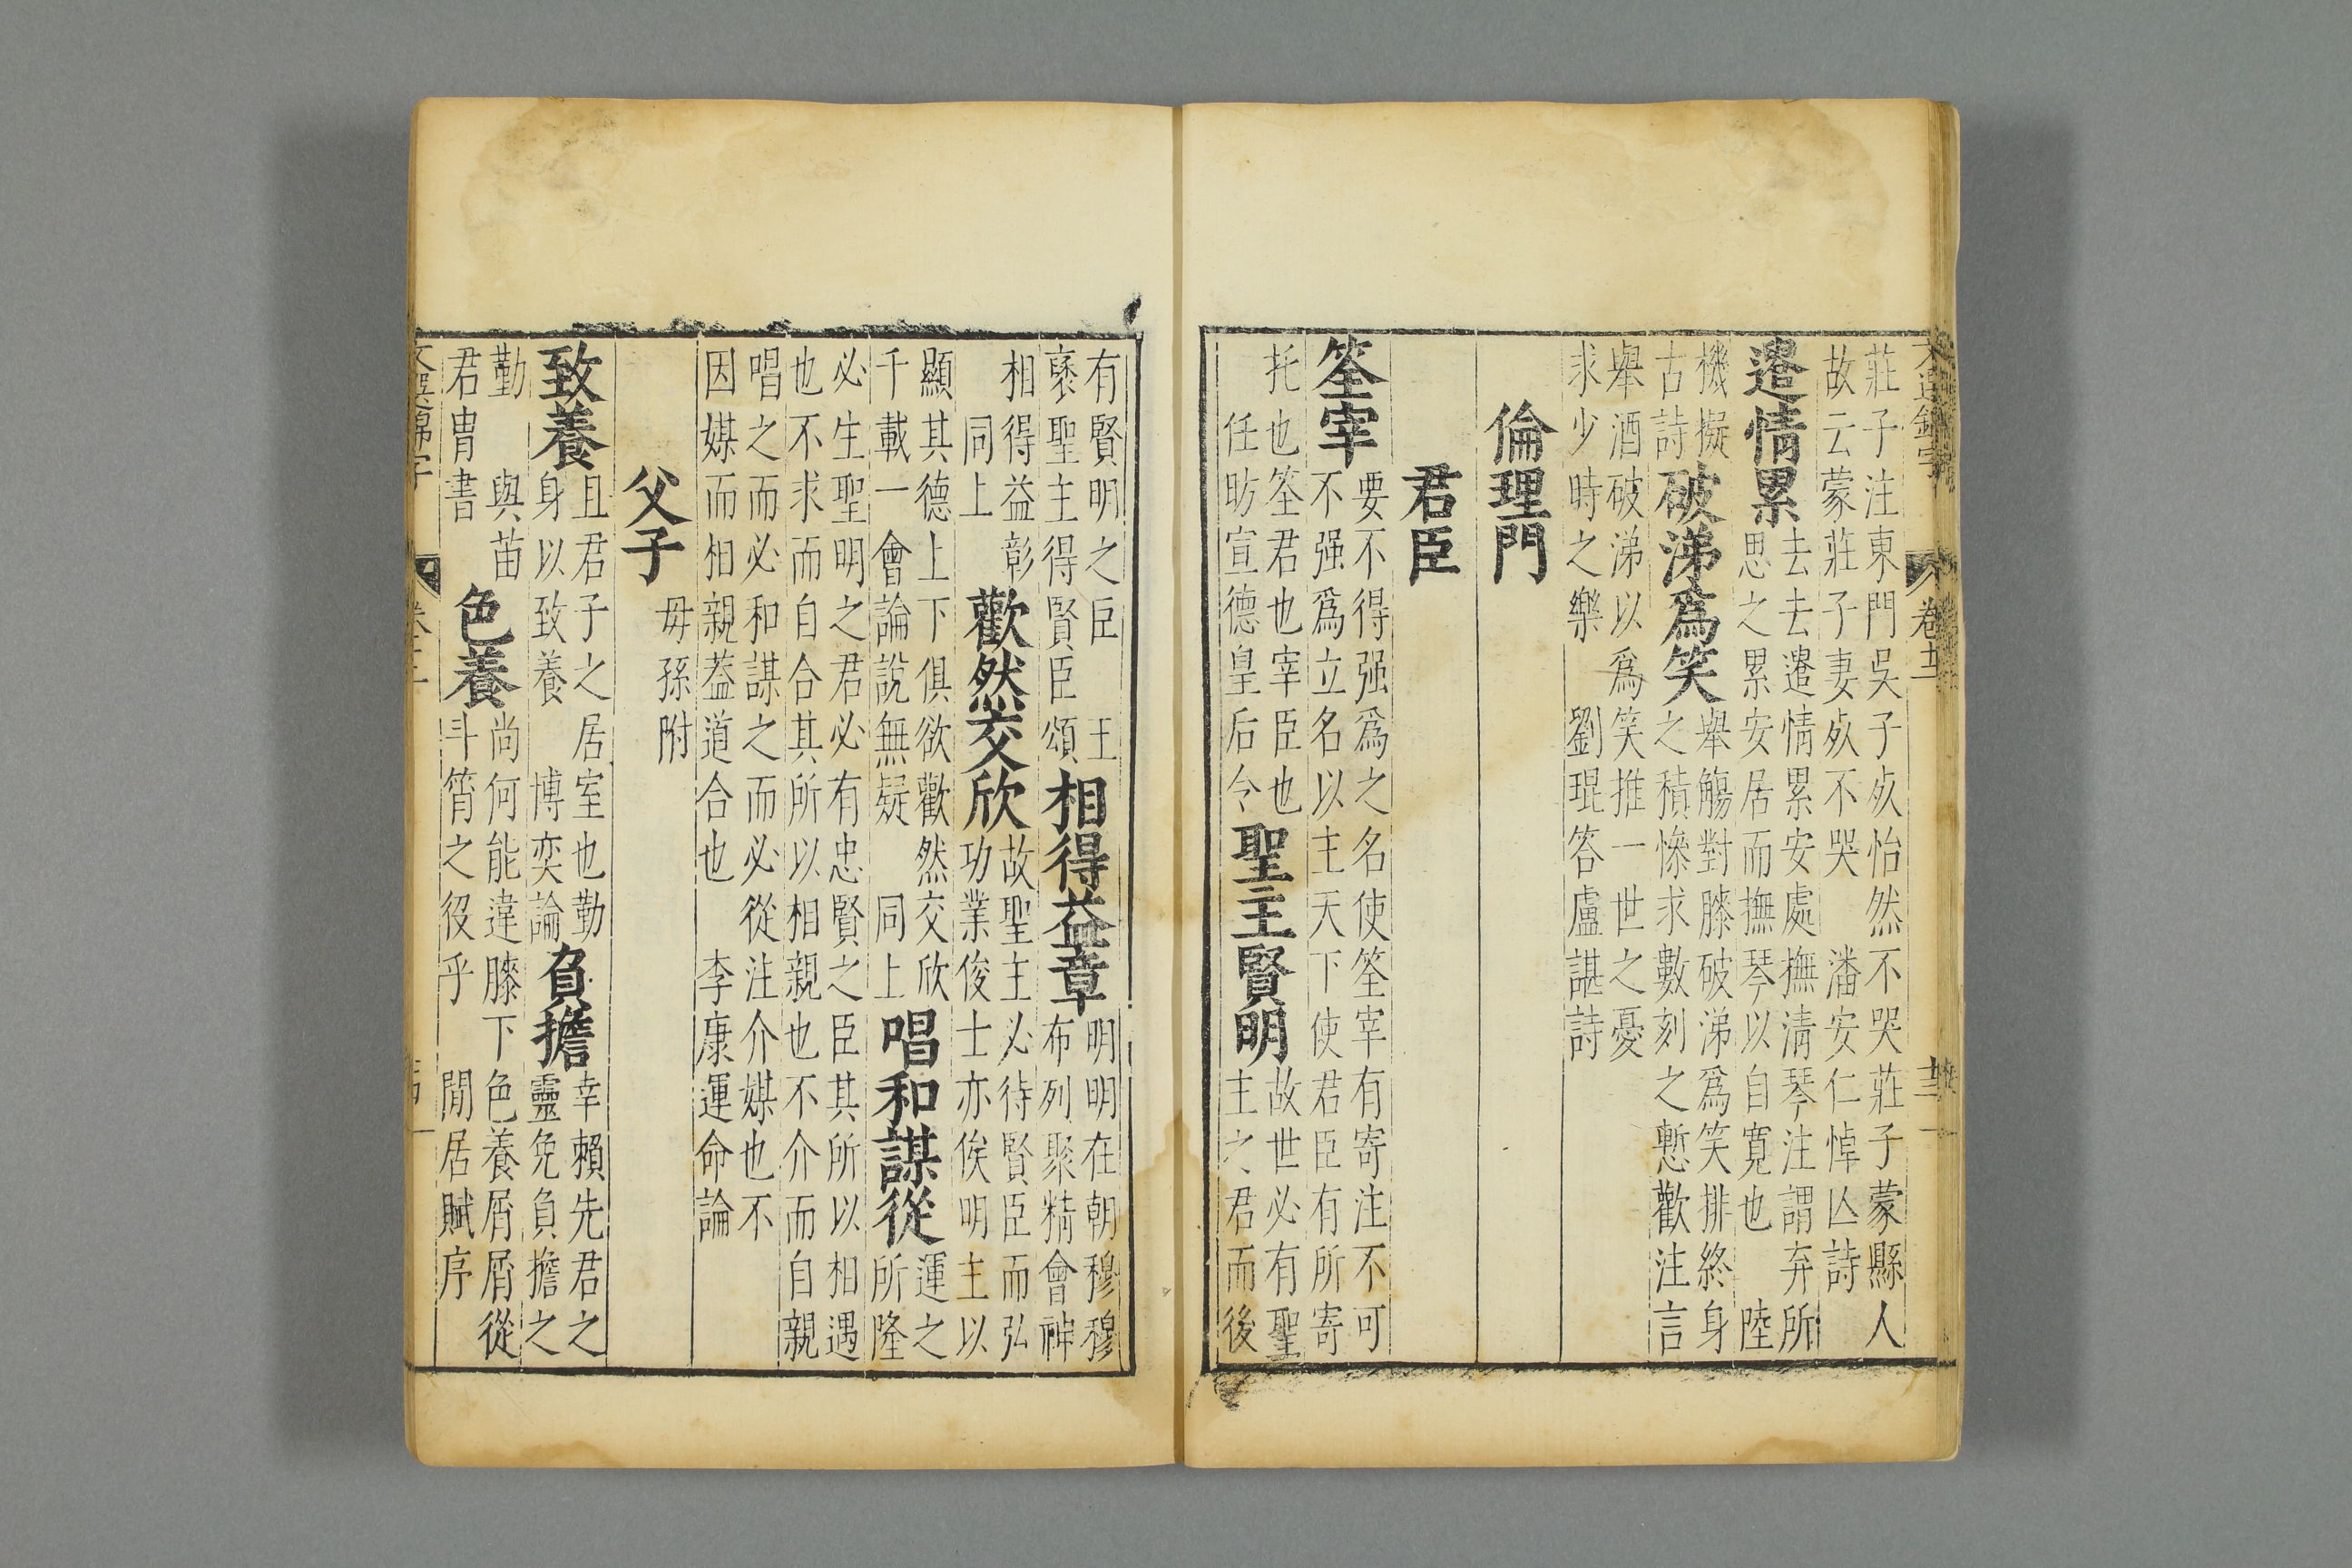 莊子注東門吳子㱙怡然不哭莊子蒙縣人
故云蒙莊子妻㱙不哭 潘安仁悼亾詩
遣情累
去去遣情累安處撫清琴注謂弃所
思之累安居而撫琴以自寬也 陸
機擬
古詩
破涕爲笑
舉觴對膝破涕爲笑排終身
之積慘求數刻之慙歡注言
舉酒破涕以爲笑推一世之憂
求少時之樂 劉琨答盧諶詩
倫理門
君臣
筌宰
要不得强爲之名使筌宰有寄注不可
不强爲立名以主天下使君臣有所寄
托也筌君也宰臣也
任昉宣德皇后令
聖主賢明
故世必有聖
主之君而後
有賢明之臣 王
褒聖主得賢臣頌
相得益章
明明在朝穆穆
布列聚精會神
相得益彰
同上
歡然交欣
故聖主必待賢臣而弘
功業俊士亦俟明主以
顯其德上下俱欲歡然交欣
千載一會論說無疑 同上
唱和謀從
運之
所隆
必生聖明之君必有忠賢之臣其所以相遇
也不求而自合其所以相親也不介而自親
唱之而必和謀之而必從注介媒也不
因媒而相親葢道合也 李康運命論
父子
毋孫附
致養
且君子之居室也勤
身以致養 博奕論
負擔
幸賴先君之
靈免負擔之
勤 與苗
君冑書
色養
尚何能違膝下色養屑屑從
斗筲之役乎 閒居賦序
卷